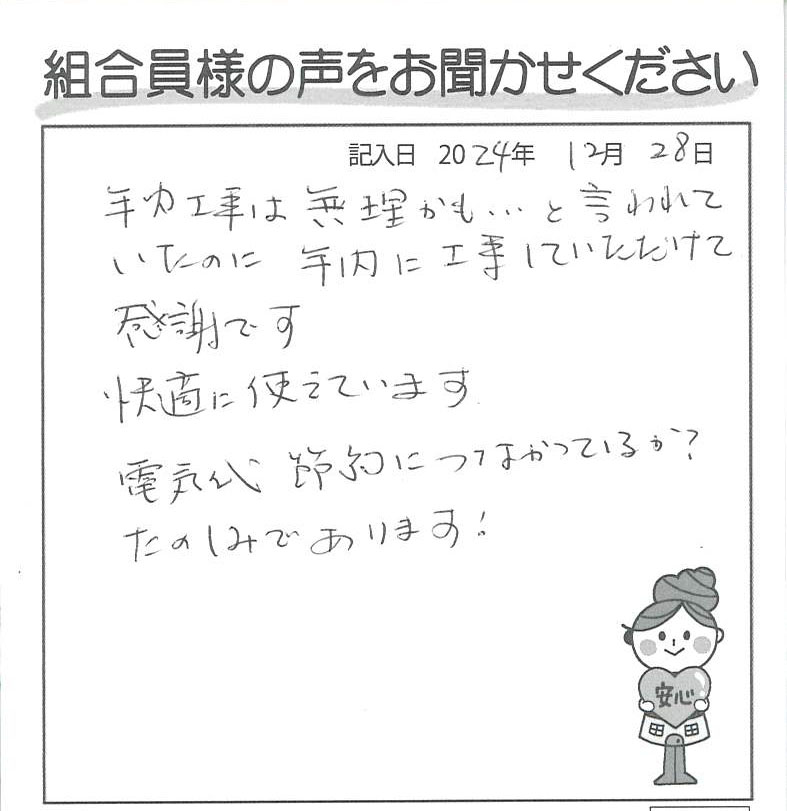 組合員様の声をお聞かせください
記入日 2024年 12月 28日
年内工事は 無理かも…と言われて
いたのに 年内に工事していただけて
感謝です
快適に使えています
電気代 節約につながっているか?
たのしみであります!
安心